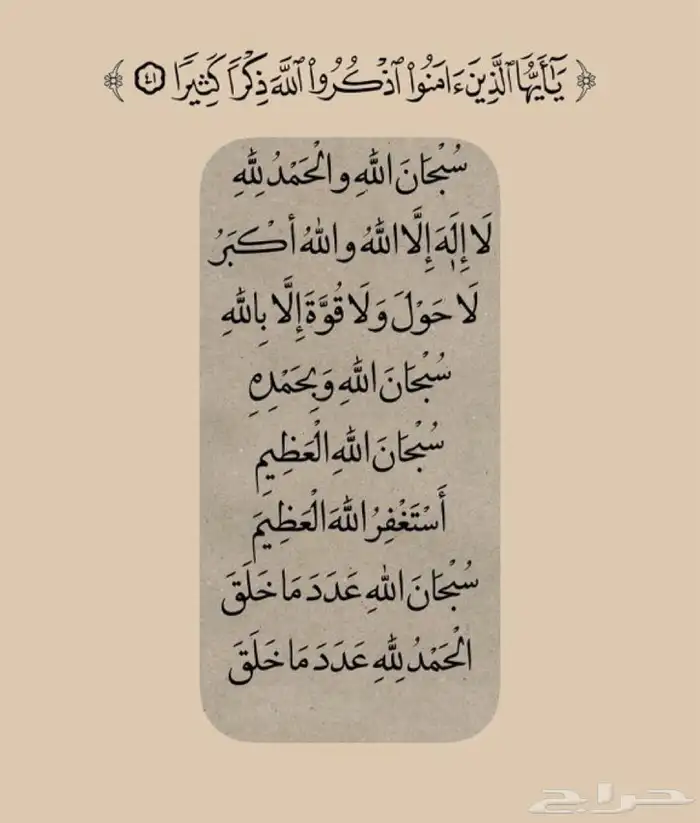 ﴿ يَٰٓأَيُّهَا ٱلَّذِينَ ءَامَنُوا۟ ٱذْكُرُوا۟ ٱللَّهَ ذِكْرًا كَثِيرًا ٤١ ﴾
سُبْحَانَ اللهِ والْحَمْدُ لِلَّهِ
لَا إِلَٰهَ إِلَّا اللهُ واللهُ أكْبَرُ
لَا حَوْلَ وَلَا قُوَّةَ إِلَّا بِاللهِ
سُبْحَانَ اللهِ وَبِحَمْدِهِ
سُبْحَانَ اللهِ الْعَظِيمِ
أَسْتَغْفِرُ اللهَ الْعَظِيمَ
سُبْحَانَ اللهِ عَدَدَ مَا خَلَقَ
الْحَمْدُ لِلَّهِ عَدَدَ مَا خَلَقَ
حراج